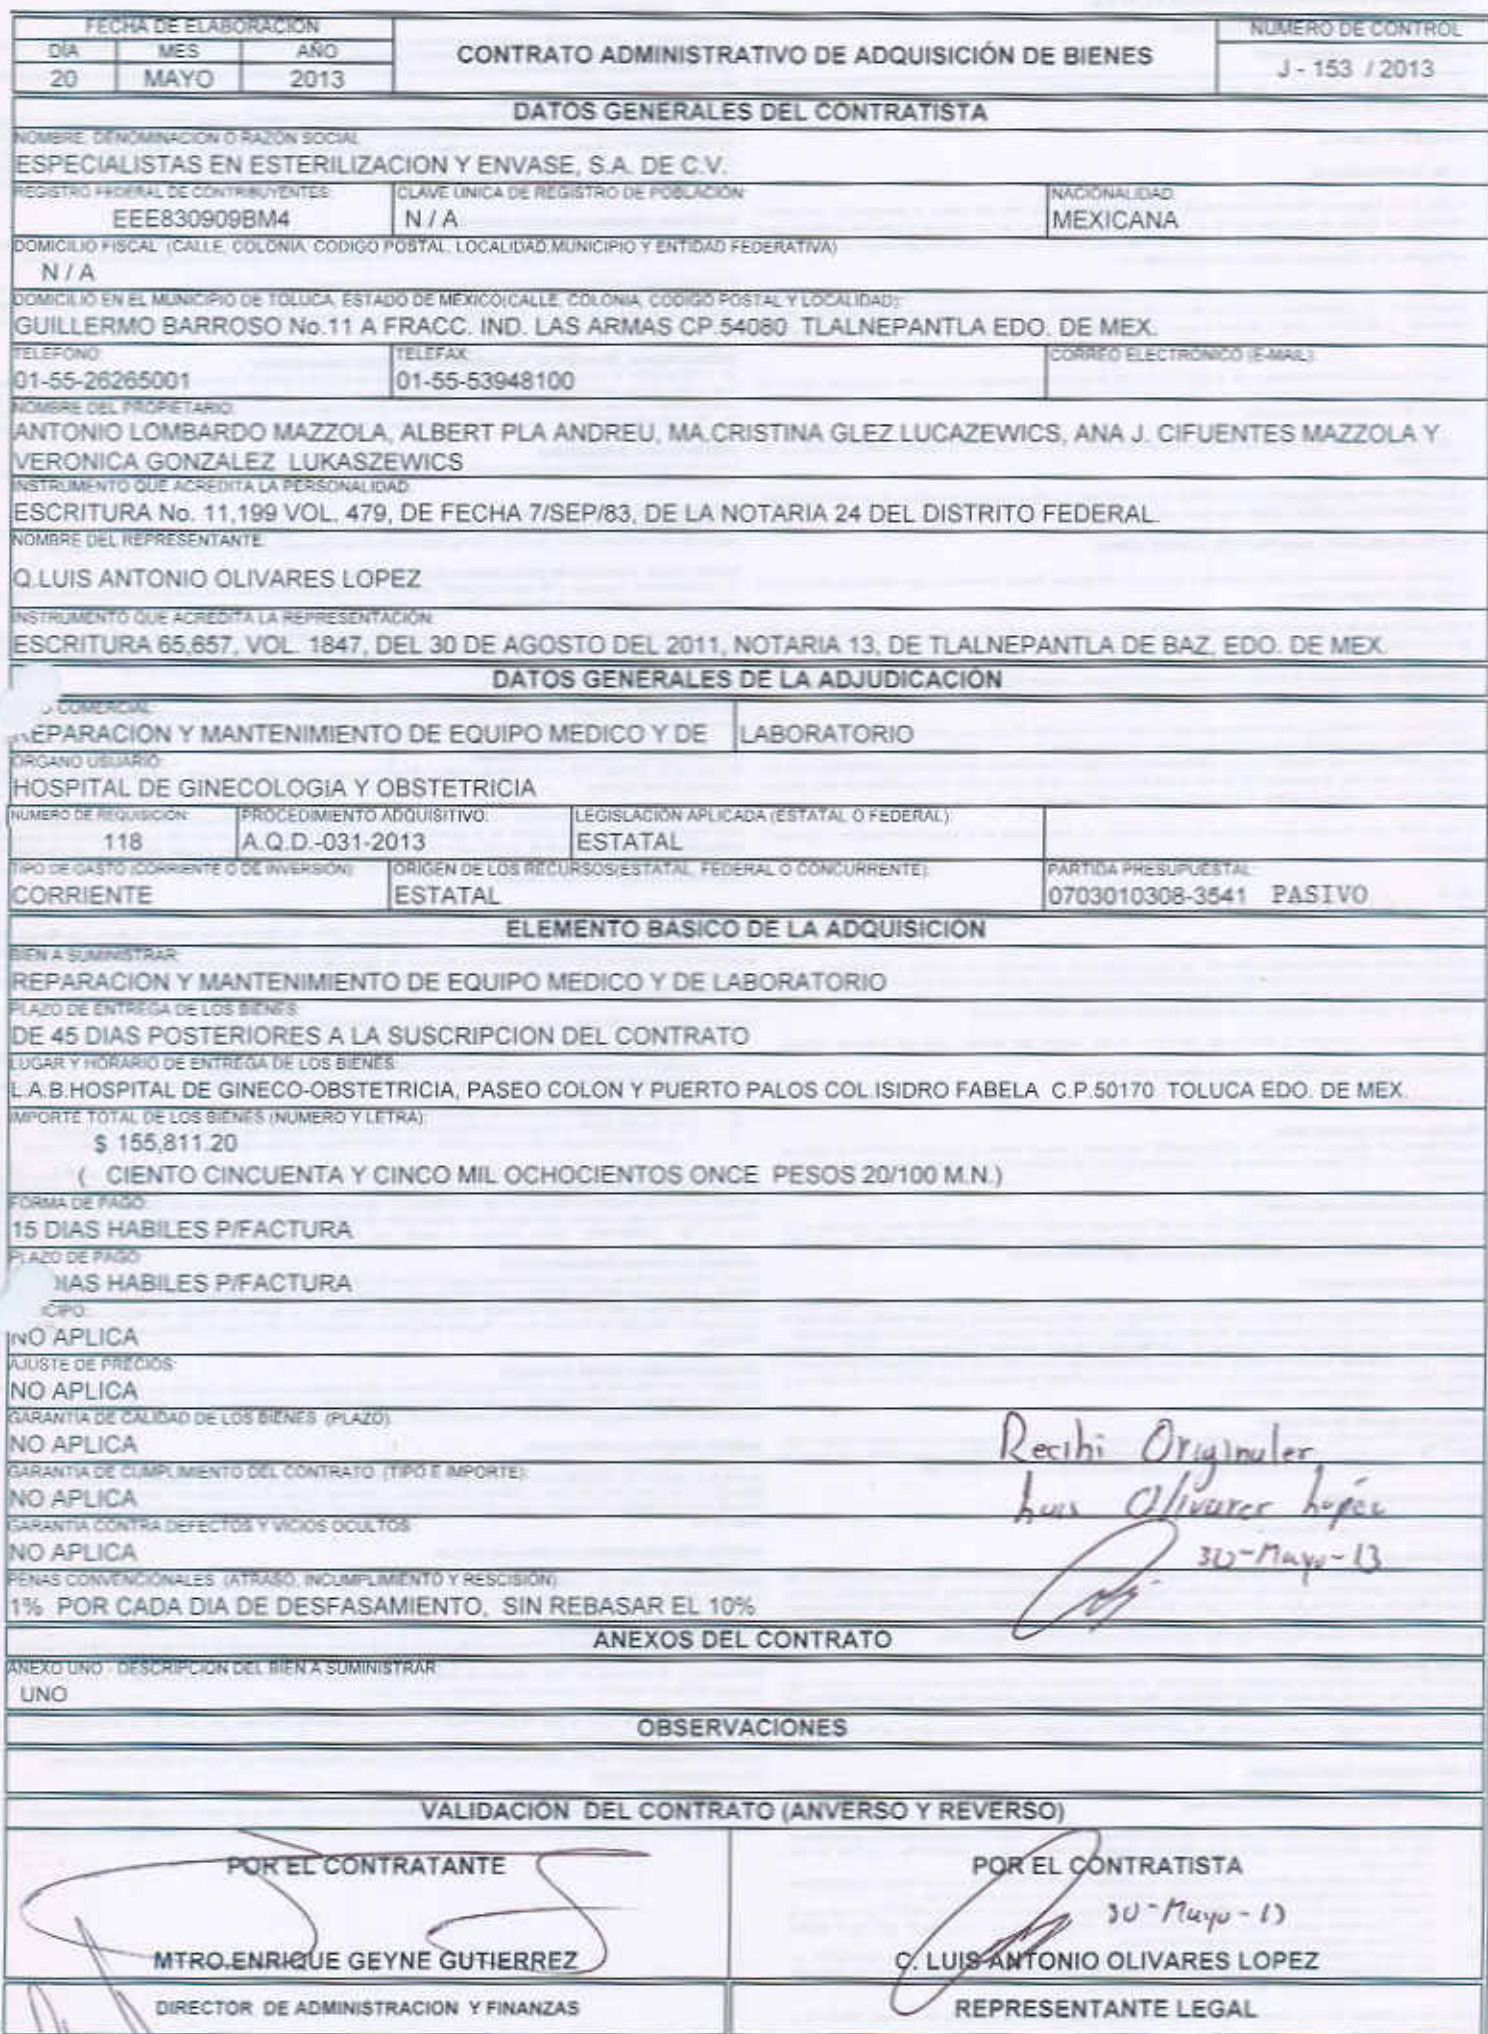 FECHA DE ELABORACIÓN
DÍA MES AÑO
20 MAYO 2013
CONTRATO ADMINISTRATIVO DE ADQUISICIÓN DE BIENES
NUMERO DE CONTROL
J - 153 / 2013
DATOS GENERALES DEL CONTRATISTA
NOMBRE, DENOMINACION O RAZÓN SOCIAL
ESPECIALISTAS EN ESTERILIZACION Y ENVASE, S.A. DE C.V.
REGISTRO FEDERAL DE CONTRIBUYENTES: CLAVE UNICA DE REGISTRO DE POBLACIÓN: NACIONALIDAD:
EEE830909BM4 N / A MEXICANA
DOMICILIO FISCAL (CALLE, COLONIA, CODIGO POSTAL, LOCALIDAD,MUNICIPIO Y ENTIDAD FEDERATIVA)
N / A
DOMICILIO EN EL MUNICIPIO DE TOLUCA, ESTADO DE MÉXICO(CALLE, COLONIA, CODIGO POSTAL Y LOCALIDAD):
GUILLERMO BARROSO No.11 A FRACC. IND. LAS ARMAS CP.54080 TLALNEPANTLA EDO. DE MEX.
TELEFONO: TELEFAX: CORREO ELECTRÓNICO (E-MAIL):
01-55-26265001 01-55-53948100
NOMBRE DEL PROPIETARIO:
ANTONIO LOMBARDO MAZZOLA, ALBERT PLA ANDREU, MA.CRISTINA GLEZ.LUCAZEWICS, ANA J. CIFUENTES MAZZOLA Y
VERONICA GONZALEZ LUKASZEWICS
INSTRUMENTO QUE ACREDITA LA PERSONALIDAD:
ESCRITURA No. 11,199 VOL. 479, DE FECHA 7/SEP/83, DE LA NOTARIA 24 DEL DISTRITO FEDERAL.
NOMBRE DEL REPRESENTANTE:
Q.LUIS ANTONIO OLIVARES LOPEZ
INSTRUMENTO QUE ACREDITA LA REPRESENTACIÓN:
ESCRITURA 65,657, VOL. 1847, DEL 30 DE AGOSTO DEL 2011, NOTARIA 13, DE TLALNEPANTLA DE BAZ, EDO. DE MEX.
DATOS GENERALES DE LA ADJUDICACIÓN
COMERCIAL:
EPARACION Y MANTENIMIENTO DE EQUIPO MEDICO Y DE LABORATORIO
ORGANO USUARIO:
HOSPITAL DE GINECOLOGIA Y OBSTETRICIA
NUMERO DE REQUISICION: PROCEDIMIENTO ADQUISITIVO: LEGISLACIÓN APLICADA (ESTATAL O FEDERAL):
118 A.Q.D.-031-2013 ESTATAL
TIPO DE GASTO (CORRIENTE O DE INVERSIÓN): ORIGEN DE LOS RECURSOS(ESTATAL, FEDERAL O CONCURRENTE): PARTIDA PRESUPUESTAL:
CORRIENTE ESTATAL 0703010308-3541 PASIVO
ELEMENTO BASICO DE LA ADQUISICIÓN
BIEN A SUMINISTRAR:
REPARACION Y MANTENIMIENTO DE EQUIPO MEDICO Y DE LABORATORIO
PLAZO DE ENTREGA DE LOS BIENES:
DE 45 DIAS POSTERIORES A LA SUSCRIPCION DEL CONTRATO
LUGAR Y HORARIO DE ENTREGA DE LOS BIENES:
L.A.B.HOSPITAL DE GINECO-OBSTETRICIA, PASEO COLON Y PUERTO PALOS COL.ISIDRO FABELA C.P.50170 TOLUCA EDO. DE MEX.
IMPORTE TOTAL DE LOS BIENES (NUMERO Y LETRA):
$ 155,811.20
( CIENTO CINCUENTA Y CINCO MIL OCHOCIENTOS ONCE PESOS 20/100 M.N.)
FORMA DE PAGO:
15 DIAS HABILES P/FACTURA
PLAZO DE PAGO:
DIAS HABILES P/FACTURA
ICIPO:
NO APLICA
AJUSTE DE PRECIOS:
NO APLICA
GARANTIA DE CALIDAD DE LOS BIENES (PLAZO)
NO APLICA
GARANTIA DE CUMPLIMIENTO DEL CONTRATO (TIPO E IMPORTE):
NO APLICA
GARANTIA CONTRA DEFECTOS Y VICIOS OCULTOS
NO APLICA
Recibi Originales
Luis Olivares López
30-Mayo-13
PENAS CONVENCIONALES (ATRASO, INCUMPLIMIENTO Y RESCISIÓN):
1% POR CADA DIA DE DESFASAMIENTO, SIN REBASAR EL 10%
ANEXOS DEL CONTRATO
ANEXO UNO - DESCRIPCION DEL BIEN A SUMINISTRAR:
UNO
OBSERVACIONES
VALIDACIÓN DEL CONTRATO (ANVERSO Y REVERSO)
POR EL CONTRATANTE POR EL CONTRATISTA
30-Mayo-13
MTRO.ENRIQUE GEYNE GUTIERREZ C. LUIS ANTONIO OLIVARES LOPEZ
DIRECTOR DE ADMINISTRACION Y FINANZAS REPRESENTANTE LEGAL